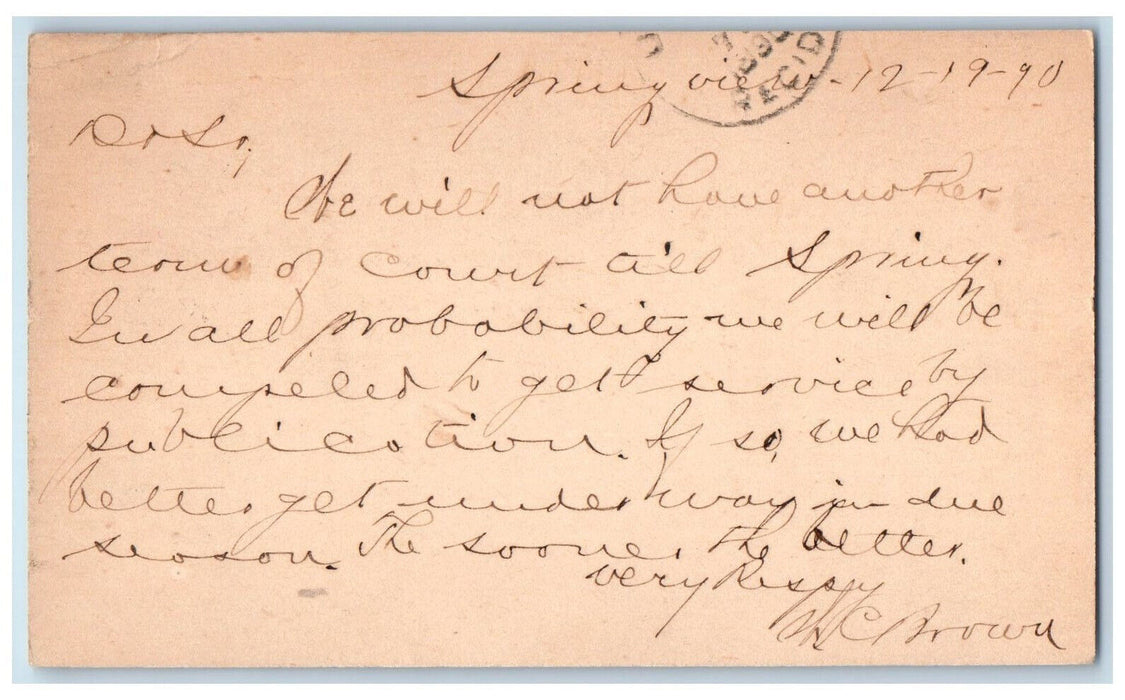 Springview - 12-19-90
Dr Sr,
We will not have another
term of court till Spring.
In all probability we will be
compeled to get service by
publication. If so, we had
better get under way in due
season. The sooner the better.
Very Respy
C Brown
REC'D